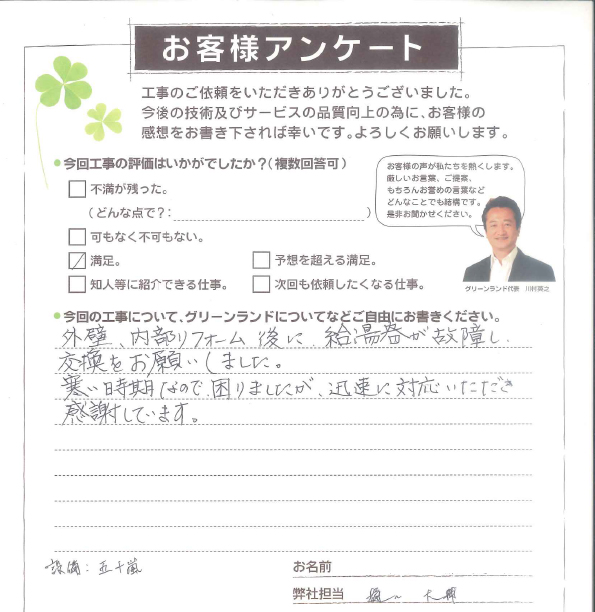 お客様アンケート
工事のご依頼をいただきありがとうございました。
今後の技術及びサービスの品質向上の為に、お客様の
感想をお書き下されば幸いです。よろしくお願いします。
●今回工事の評価はいかがでしたか？（複数回答可）
不満が残った。
（どんな点で？：）
可もなく不可もない。
満足。
予想を超える満足。
知人等に紹介できる仕事。
次回も依頼したくなる仕事。
お客様の声が私たちを熱くします。
厳しいお言葉、ご提案、
もちろんお誉めの言葉など
どんなことでも結構です。
是非お聞かせください。
グリーンランド代表 川村英之
●今回の工事について、グリーンランドについてなどご自由にお書きください。
外壁、内部リフォーム後に、給湯器が故障し、
交換をお願いしました。
寒い時期なので、困りましたが、迅速に対応いただき
感謝しています。
設備：五十嵐
お名前
弊社担当